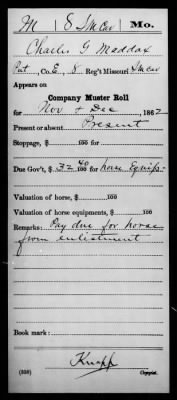 M | 8 S M Cav | Mo.
Charles G Maddax
Pvt, Co. E, 8 Reg't Missouri S M Cav
Appears on
Company Muster Roll
for Nov & Dec, 1862
Present or absent Present
Stoppage, $ 100 for
Due Gov't, $ 32 40/100 for horse Equip's-
Valuation of horse, $ 100
Valuation of horse equipments, $ 100
Remarks: Pay due for horse
from enlistment
Book mark:
Knapp
(358) Copyist.